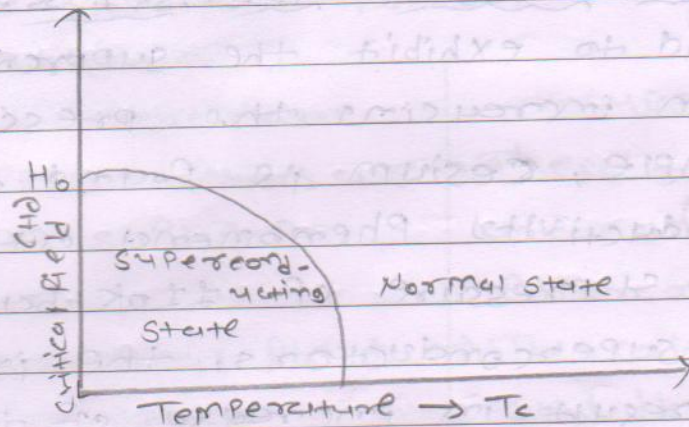 H₀
Critical field (Hc)
Supercond-
ucting
State
Normal State
Temperature → Tc